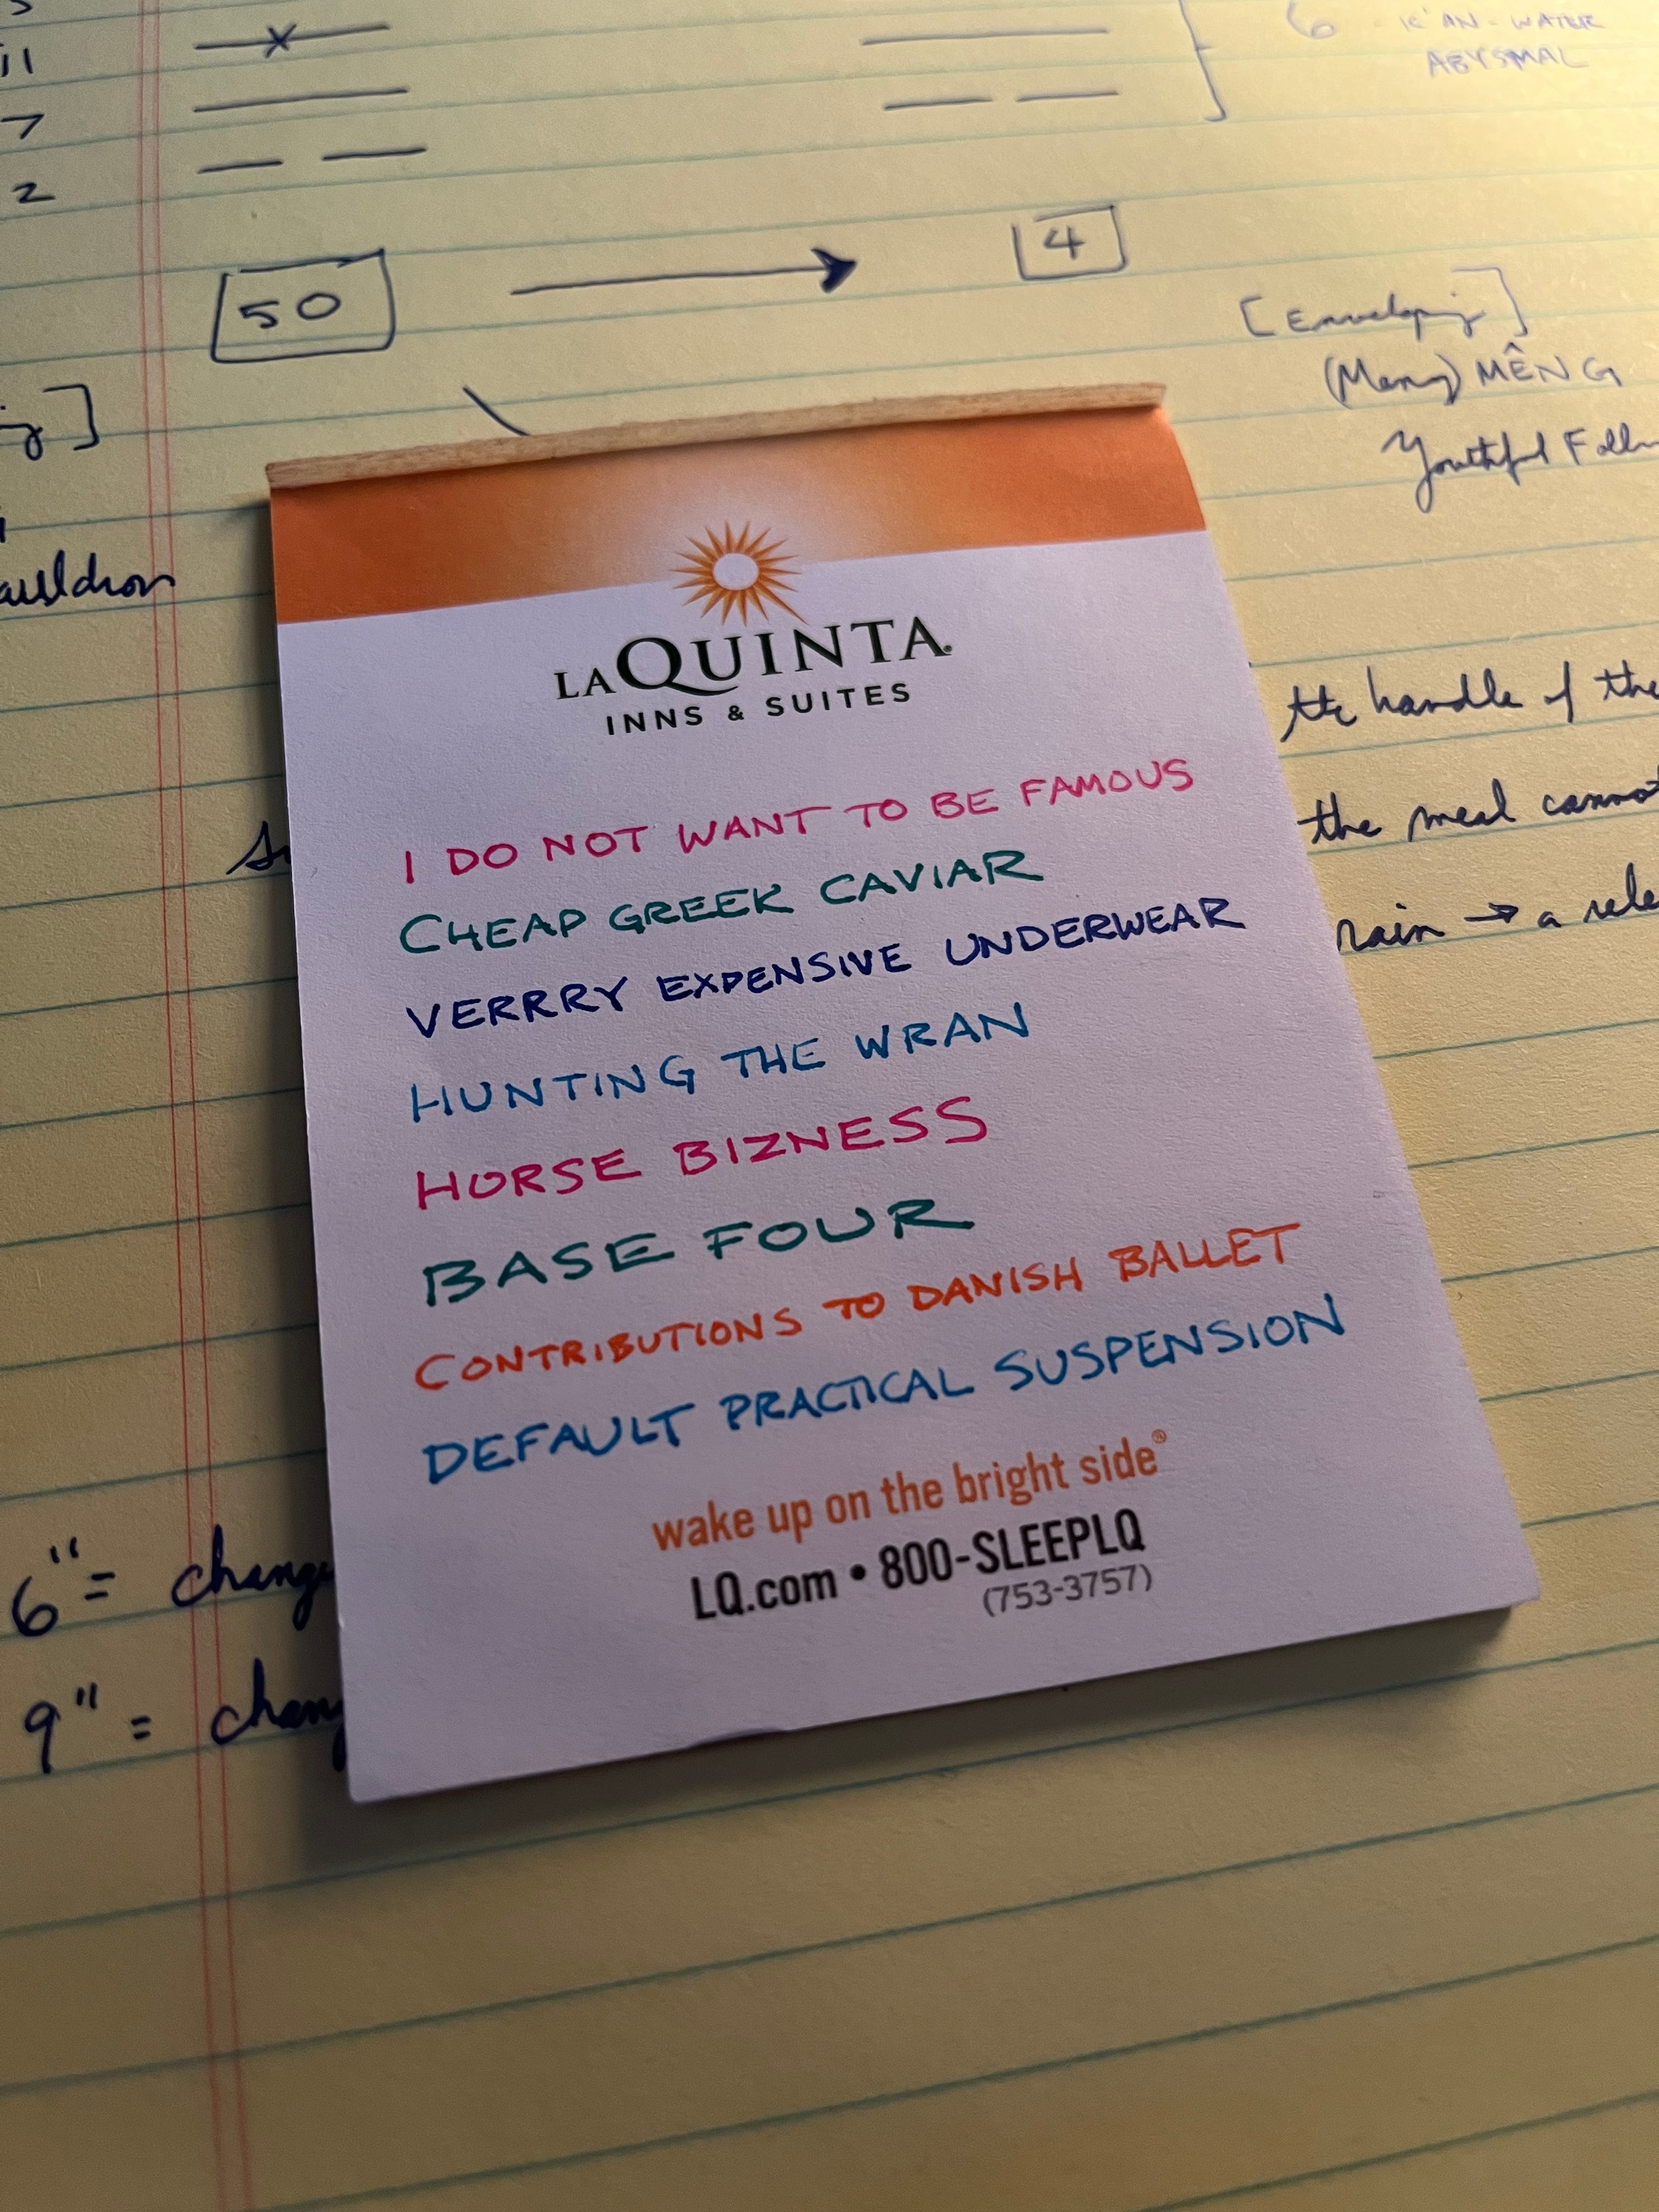 11
7
2
6 - K'AN - WATER
ABYSMAL
50
4
[Enveloping]
(Meng) MÊNG
Youthful
LAQUINTA
INNS & SUITES
I DO NOT WANT TO BE FAMOUS
CHEAP GREEK CAVIAR
VERRRY EXPENSIVE UNDERWEAR
HUNTING THE WRAN
HORSE BIZNESS
BASE FOUR
CONTRIBUTIONS TO DANISH BALLET
DEFAULT PRACTICAL SUSPENSION
wake up on the bright side®
LQ.com • 800-SLEEPLQ
(753-3757)
auldron
the handle of the
the meal cannot
rain → a rele
6" = chang
9" = chang